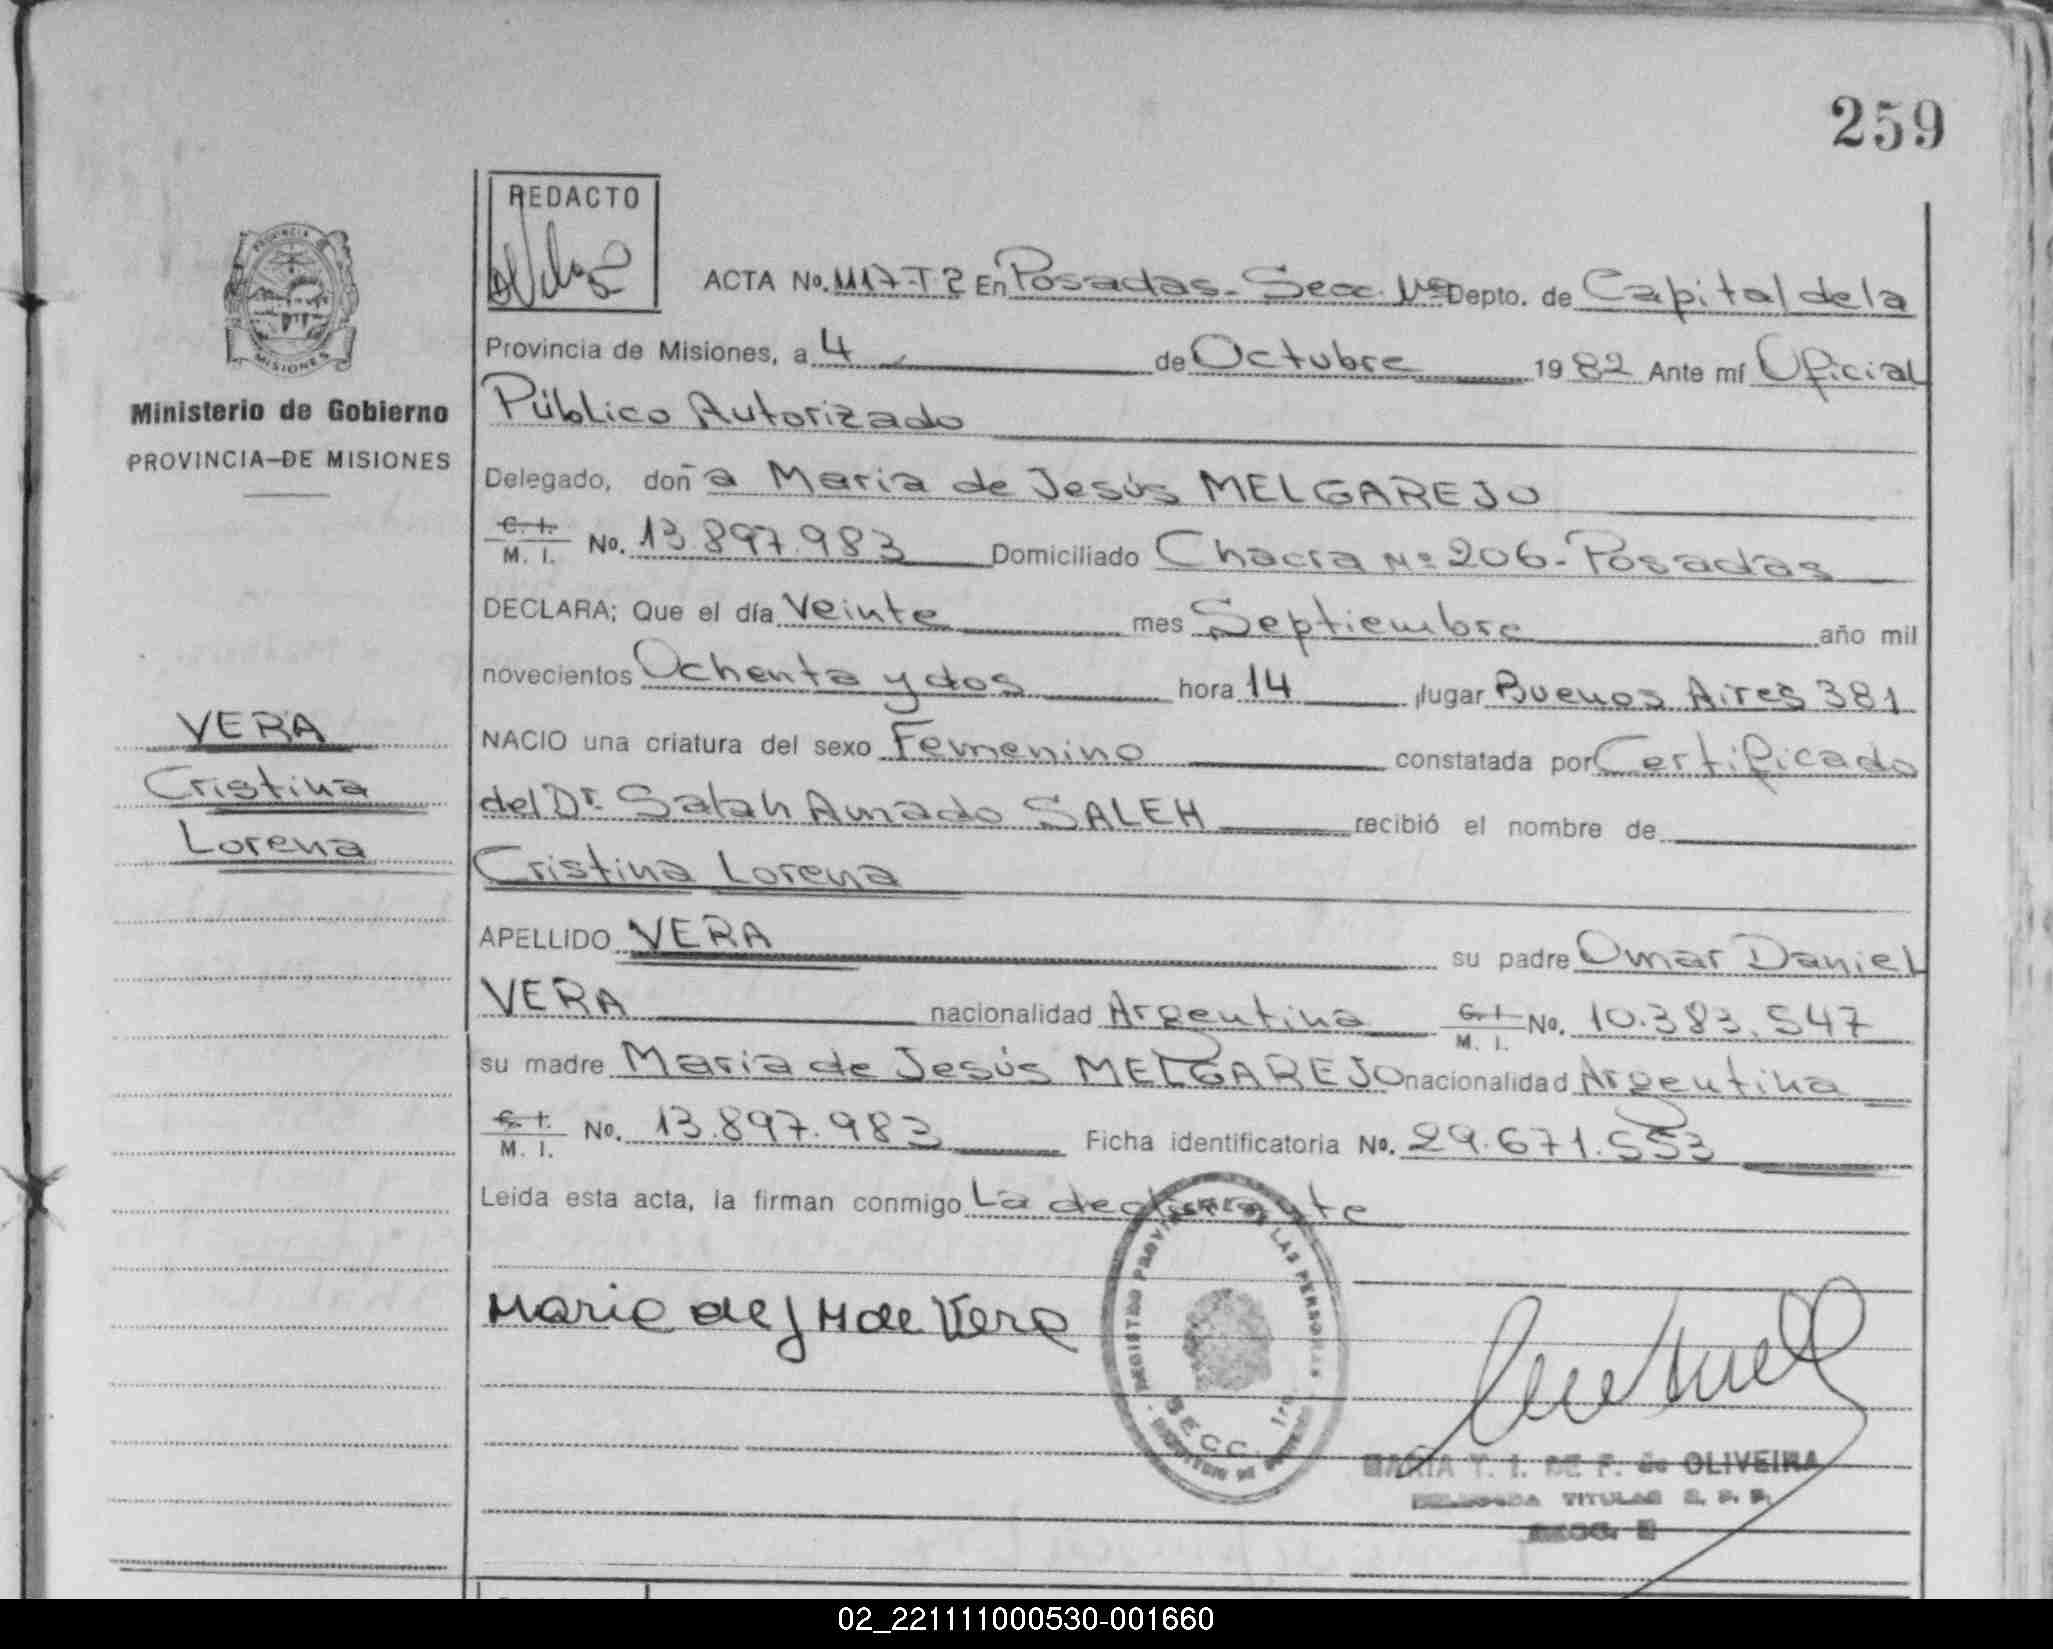 259
REDACTO
ACTA No. 1117-T2 En Posadas.- Secc. 1ª Depto. de Capital de la
PROVINCIA
MISIONES
Provincia de Misiones, a 4 de Octubre 1982 Ante mí Oficial
Ministerio de Gobierno
Público Autorizado
PROVINCIA-DE MISIONES
Delegado, doña Maria de Jesús MELGAREJO
C. I.
M. I. No. 13.897.983 Domiciliado Chacra Nº 206.- Posadas
DECLARA; Que el día Veinte mes Septiembre año mil
novecientos Ochenta y dos hora 14 lugar Buenos Aires 381
VERA
NACIO una criatura del sexo Femenino constatada por Certificado
Cristina
del Dr. Salah Amado SALEH recibió el nombre de
Lorena
Cristina Lorena
APELLIDO VERA su padre Omar Daniel
VERA nacionalidad Argentina C. I. M. I. No. 10.383.547
su madre Maria de Jesús MELGAREJO nacionalidad Argentina
C. I.
M. I. No. 13.897.983 Ficha identificatoria No. 29.671.553
Leida esta acta, la firman conmigo La declarante
REGISTRO PROVINCIAL DE LAS PERSONAS
SECC. 1ra
Maria de J M de Vera
MARIA T. I. DE F. de OLIVEIRA
DELEGADA TITULAR R. P. P.
SECC.
02_221111000530-001660